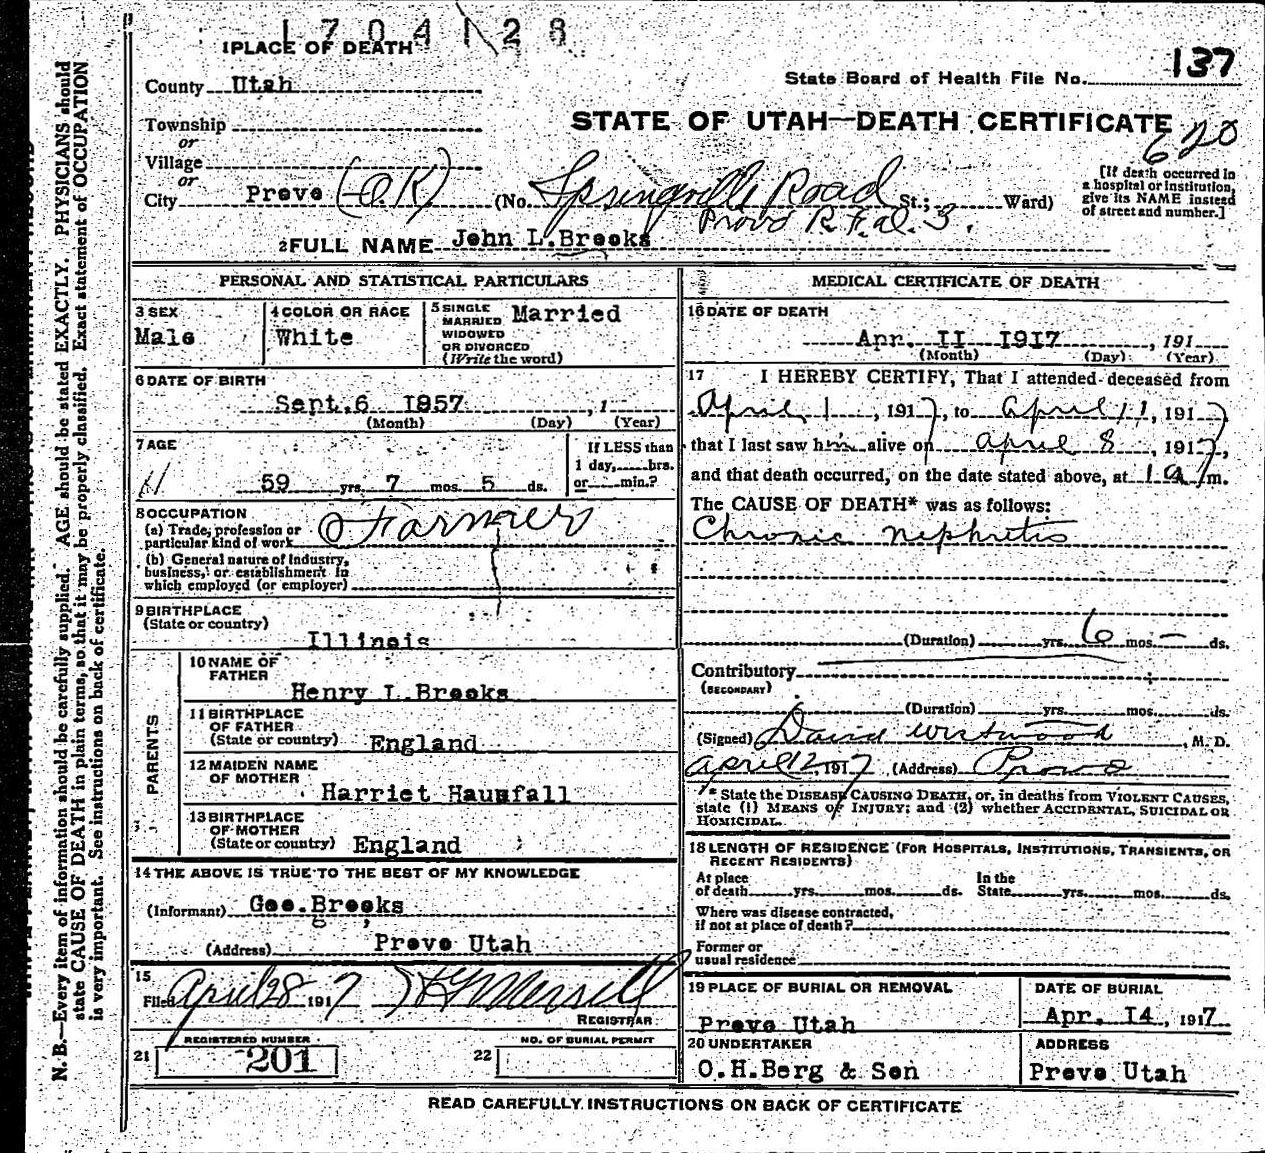 1704128
1 PLACE OF DEATH
State Board of Health File No. 137
County Utah
STATE OF UTAH—DEATH CERTIFICATE
620
Township
or
Village
or
City Provo (O.K) (No. Springville Road St.; Ward)
Provo R.F.d. 3.
[If death occurred in
a hospital or institution,
give its NAME instead
of street and number.]
2 FULL NAME John L.Brooks
PERSONAL AND STATISTICAL PARTICULARS
3 SEX
Male
4 COLOR OR RACE
White
5 SINGLE
MARRIED
WIDOWED
OR DIVORCED
(Write the word)
Married
6 DATE OF BIRTH
Sept.6 1857, 1
(Month) (Day) (Year)
7 AGE
59 yrs. 7 mos. 5 ds.
If LESS than
1 day, hrs.
or min.?
8 OCCUPATION
(a) Trade, profession or
particular kind of work Farmer
(b) General nature of Industry,
business, or establishment in
which employed (or employer)
9 BIRTHPLACE
(State or country)
Illinois
PARENTS
10 NAME OF
FATHER
Henry L.Brooks
11 BIRTHPLACE
OF FATHER
(State or country) England
12 MAIDEN NAME
OF MOTHER
Harriet Hausfall
13 BIRTHPLACE
OF MOTHER
(State or country) England
14 THE ABOVE IS TRUE TO THE BEST OF MY KNOWLEDGE
(Informant) Geo.Brooks
(Address) Provo Utah
15
Filed April 28 1917
REGISTRAR
REGISTERED NUMBER
21 201
NO. OF BURIAL PERMIT
22
MEDICAL CERTIFICATE OF DEATH
16 DATE OF DEATH
Apr. II 1917, 191
(Month) (Day) (Year)
17 I HEREBY CERTIFY, That I attended deceased from
April 1, 1917, to April 11, 1917,
that I last saw him alive on April 8 1917,
and that death occurred, on the date stated above, at 1 a m.
The CAUSE OF DEATH* was as follows:
Chronic Nephritis
(Duration) yrs. 6 mos. — ds.
Contributory
(SECONDARY)
(Duration) yrs. mos. ds.
(Signed) David Westwood, M. D.
April 12, 1917 (Address) Provo
* State the DISEASE CAUSING DEATH, or, in deaths from VIOLENT CAUSES,
state (1) MEANS OF INJURY; and (2) whether ACCIDENTAL, SUICIDAL OR
HOMICIDAL.
18 LENGTH OF RESIDENCE (FOR HOSPITALS, INSTITUTIONS, TRANSIENTS, OR
RECENT RESIDENTS)
At place
of death yrs. mos. ds.
In the
State yrs. mos. ds.
Where was disease contracted,
if not at place of death?
Former or
usual residence
19 PLACE OF BURIAL OR REMOVAL
Provo Utah
DATE OF BURIAL
Apr. 14, 1917
20 UNDERTAKER
O.H.Berg & Son
ADDRESS
Provo Utah
READ CAREFULLY INSTRUCTIONS ON BACK OF CERTIFICATE
N. B.—Every item of information should be carefully supplied. AGE should be stated EXACTLY. PHYSICIANS should
state CAUSE OF DEATH in plain terms, so that it may be properly classified. Exact statement of OCCUPATION
is very important. See instructions on back of certificate.